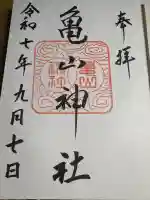 奉拝
亀山神社
令和七年九月七日